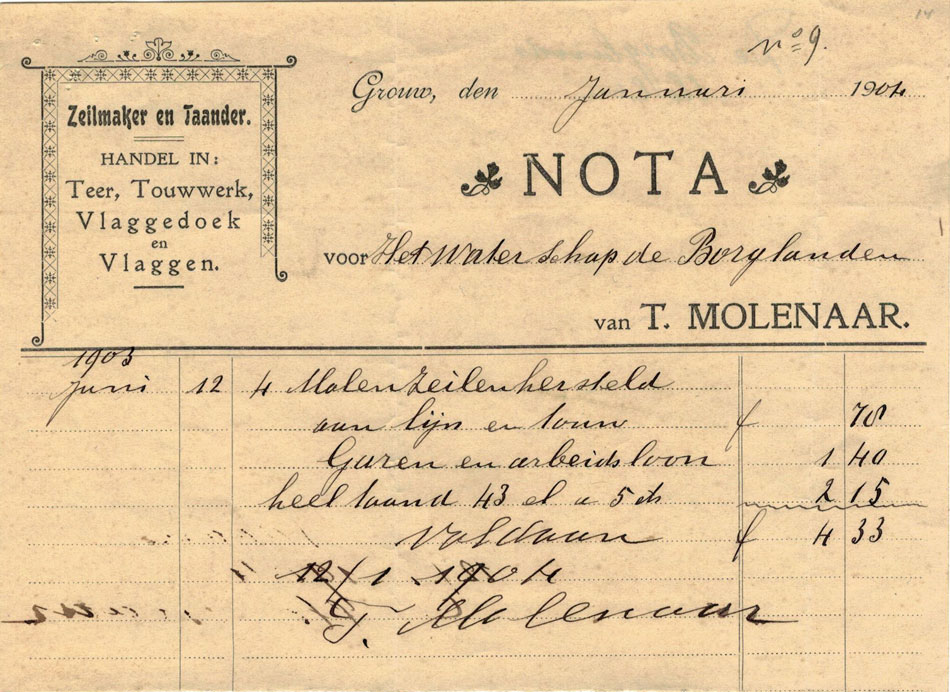 14
No 9.
Zeilmaker en Taander.
HANDEL IN:
Teer, Touwwerk,
Vlaggedoek
en
Vlaggen.
Grouw, den Januari 1904
NOTA
voor Het Waterschap de Borglanden
van T. MOLENAAR.
1903
Juni 12 4 Molenzeilen hersteld
aan lijn en touw f 78
Garen en arbeidsloon 1 40
heel taand 43 el a 5 ct 2 15
Voldaan f 4 33
12/1 1904
T. Molenaar